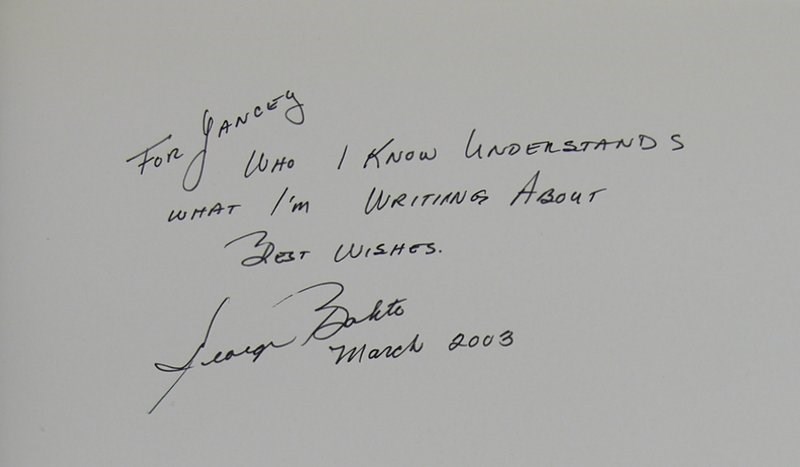 For Yancey
Who I Know Understands
what I'm Writiang About
Best Wishes.
George Bakto
March 2003